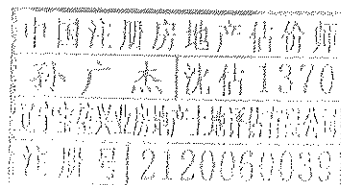 中国注册房地产估价师
孙广杰 沈估1370
辽宁宝信兴业房地产土地评估有限公司
注册号 2120060039